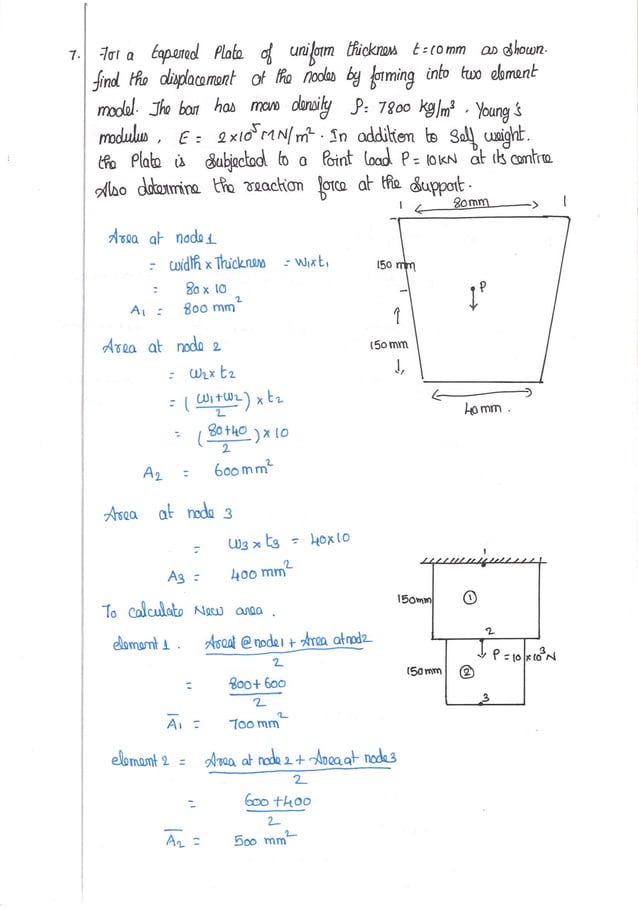 7. For a tapered plate of uniform thickness t=10mm as shown.
find the displacement at the nodes by forming into two element
model. The bar has mass density ρ= 7800 kg/m³. Young's
modulus, E = 2×10⁵ MN/m². In addition to self weight.
the plate is subjected to a point load P = 10KN at its centre
Also determine the reaction force at the support.
1 80mm 1
150 mm
P
150 mm
40mm.
Area at node 1
= width x Thickness = W₁xt₁
= 80 x 10
A₁ = 800 mm²
Area at node 2
= W₂x t₂
= (W₁+W₂/2) x t₂
= (80+40/2) x 10
A₂ = 600mm²
Area at node 3
= W₃ x t₃ = 40x10
A₃ = 400 mm²
1
150mm ①
2
P = 10 x 10³N
150 mm ②
3
To calculate New area.
element 1. Area @ node 1 + Area at nod2
2
= 800+600
2
A̅₁ = 700 mm²
element 2 = Area at node 2 + Area at node3
2
= 600 +400
2
A̅₂ = 500 mm²